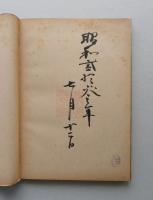 昭和貳拾参年
七月十二日